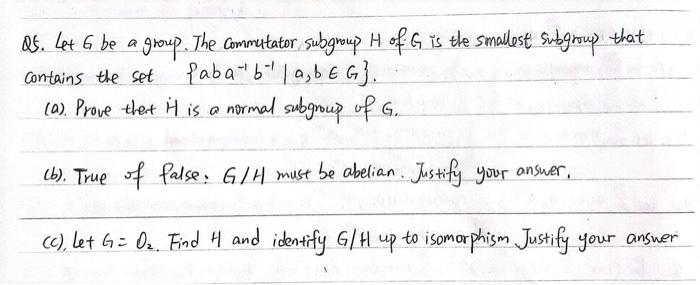 Q5. Let G be a group. The commutator subgroup H of G is the smallest subgroup that
contains the set {aba⁻¹b⁻¹ | a,b ∈ G}.
(a). Prove that H is a normal subgroup of G.
(b). True of false: G/H must be abelian. Justify your answer.
(c). Let G = O₂. Find H and identify G/H up to isomorphism Justify your answer